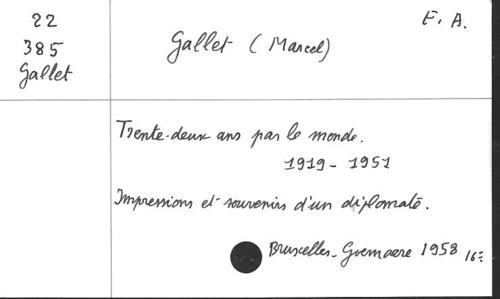 22
385
Gallet
E. A.
Gallet (Marcel)
Trente-deux ans par le monde.
1919 - 1951
Impressions et souvenirs d'un diplomate.
Bruxelles - Goemaere 1958 16=